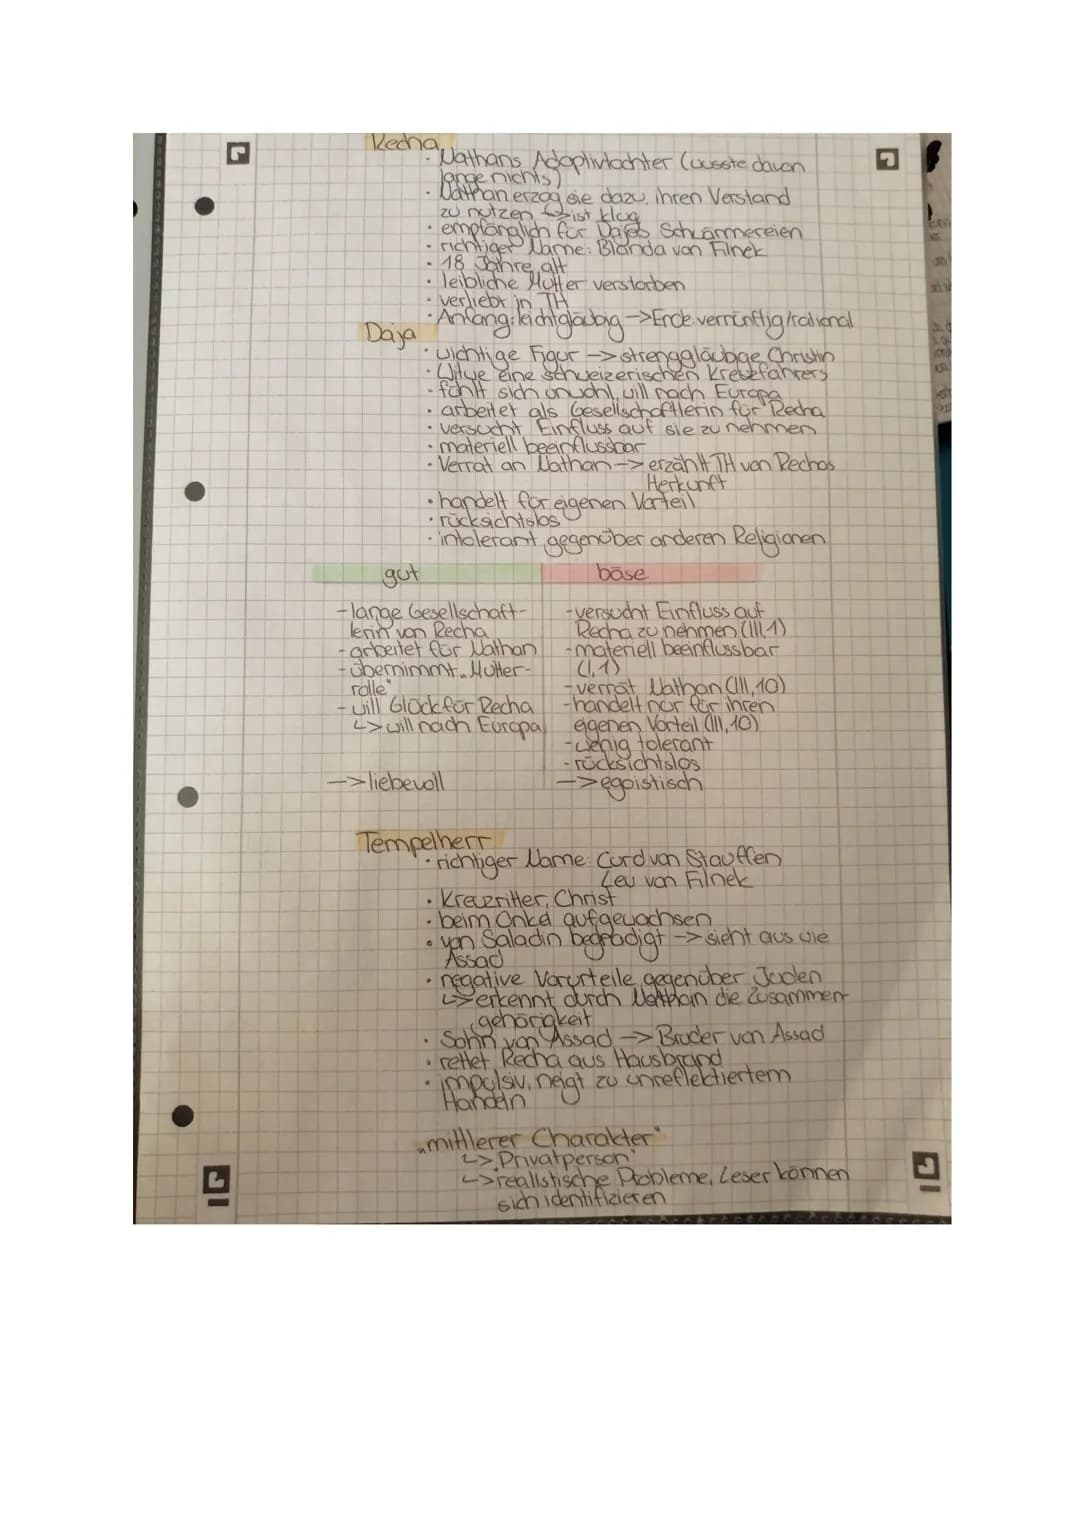 Recha
· Nathans Adoptivtochter (wusste davon
lange nichts)
· Nathan erzog sie dazu, ihren Verstand
zu nutzen ↳ ist klug
· empfänglich für Dajas Schwärmereien
· richtiger Name: Blanda von Filnek
· 18 Jahre alt
· leibliche Mutter verstorben
· verliebt in TH
· Anfang: leichtgläubig -> Ende vernünftig/rational
Daja
· wichtige Figur -> strenggläubge Christin
· Witwe eine schweizerischen Kreuzfahrers
· fühlt sich unwohl, will nach Europa
· arbeitet als Gesellschaftlerin für Recha
· versucht Einfluss auf sie zu nehmen
· materiell beeinflussbar
· Verrat an Nathan -> erzählt TH von Rechas
Herkunft
· handelt für eigenen Vorteil
· rücksichtslos
· intolerant gegenüber anderen Religionen
gut böse
- lange Gesellschaft-
lerin von Recha
- arbeitet für Nathan
- übernimmt „Mutter-
rolle"
- will Glück für Recha
↳ will nach Europa
-> liebevoll
- versucht Einfluss auf
Recha zu nehmen (III,1)
- materiell beeinflussbar
(I,1)
- verrät Nathan (III,10)
- handelt nur für ihren
eigenen Vorteil (III,10)
- wenig tolerant
- rücksichtslos
-> egoistisch
Tempelherr
· richtiger Name: Curd von Stauffen
Leu von Filnek
· Kreuzritter, Christ
· beim Onkel aufgewachsen
· von Saladin begnadigt -> sieht aus wie
Assad
· negative Vorurteile gegenüber Juden
↳ erkennt durch Nathan die Zusammen-
gehörigkeit
· Sohn von Assad -> Bruder von Assad
· rettet Recha aus Hausbrand
· impulsiv, neigt zu unreflektiertem
Handeln
„mittlerer Charakter"
↳ Privatperson
↳ realistische Probleme, Leser können
sich identifizieren